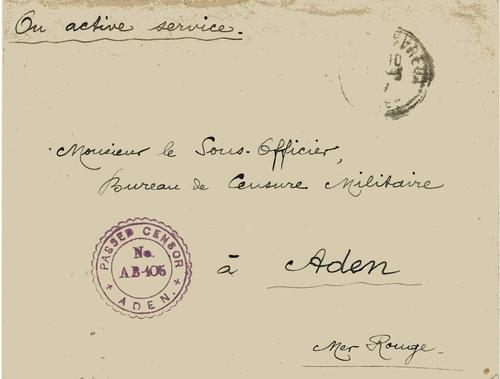 On active service.
Monsieur le Sous-Officier,
Bureau de Censure Militaire
à Aden
Mer Rouge.
PASSED CENSOR
No.
AB-105
ADEN.